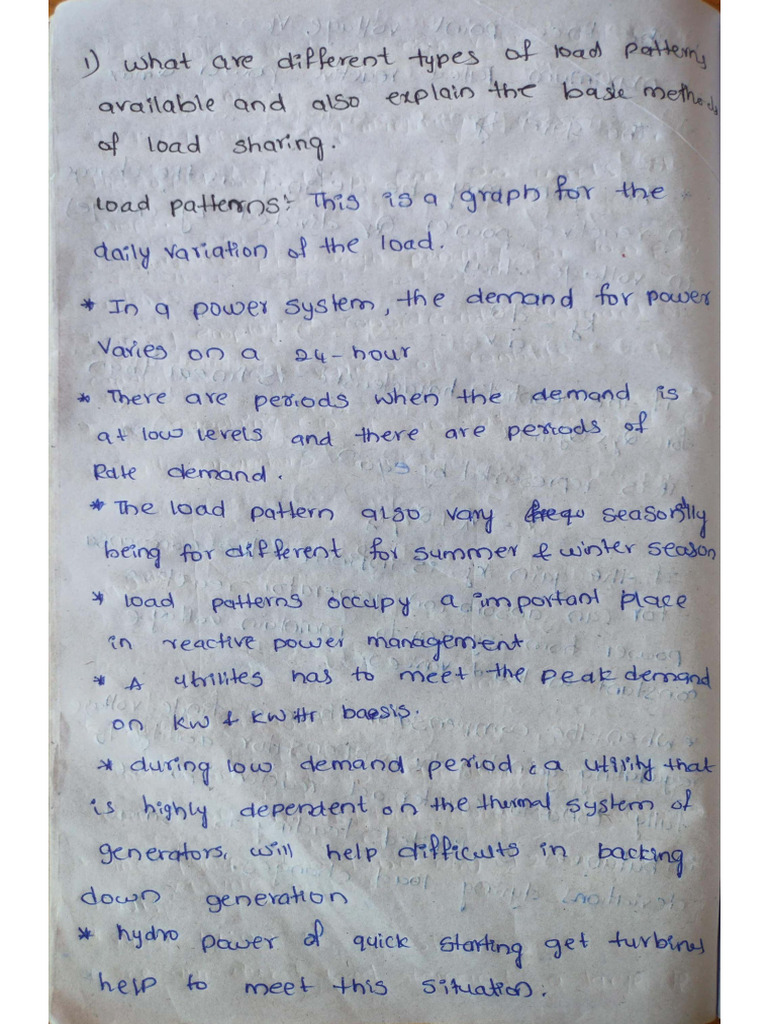 1) What are different types of load patterns
available and also explain the base methods
of load sharing.
load patterns:- This is a graph for the
daily variation of the load.
* In a power system, the demand for power
varies on a 24-hour
* There are periods when the demand is
at low levels and there are periods of
Rate demand.
* The load pattern also vary seasonally
being for different for summer & winter season
* load patterns occupy a important place
in reactive power management
* A utilites has to meet the peak demand
on kw & kwHr basis.
* during low demand period, a utility that
is highly dependent on the thermal system of
generators, will help difficults in backing
down generation
* hydro power of quick starting get turbines
help to meet this situation.